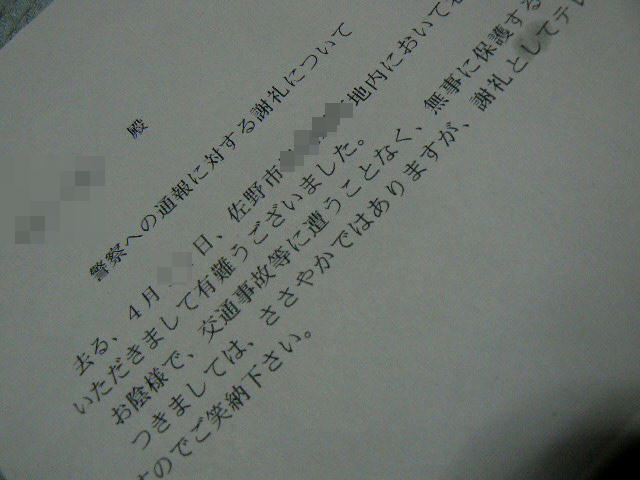 殿
警察への通報に対する謝礼について
去る、4月 日、佐野市 地内において
いただきまして有難うございました。
お陰様で、交通事故等に遭うことなく、無事に保護する
つきましては、ささやかではありますが、謝礼としてテレ
すのでご笑納下さい。